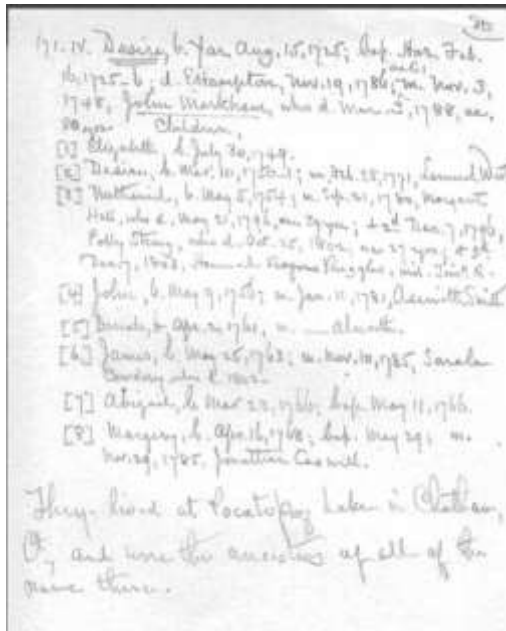 171. IV. Desire, b. Yar. Aug. 15, 1725; bap. Har. Feb.
16, 1725-6. d. EHampton, Nov. 19, 1786, m. Nov. 3,
1748, John Markham, who d. Mar. 5, 1788, ae.
80 yrs. Children,
[1] Elizabeth, b. July 30, 1749.
[2] Desire, b. Mar. 10, 1750-1; m. Feb. 28, 1771, Lemuel West
[3] Nathaniel, b. May 5, 1754; m. Sep. 21, 1780, Margaret
who d. May 21, 1796, 2d Dec. 7, 1796,
Polly Strong, who d. Oct. 25, 1802, ae 27 yrs; & 3d
Dec. 7, 1803, Hannah Ruggles, wid.
[4] John, b. May 9, 1756; m. Jan. 11, 1781, Smith
[5] Dinah, b. Apr. 2, 1761, m. ___
[6] James, b. May 25, 1763; m. Nov. 10, 1785, Sarah
who d.
[7] Abigail, b. Mar 22, 1766; bap. May 11, 1766.
[8] Margery, b. Apr. 16, 1768; bap. May 29; m.
Nov. 29, 1785, Jonathan
They lived at Pocotopog Lake in Chatham,
Ct., and were the ancestors of all of the
name there.